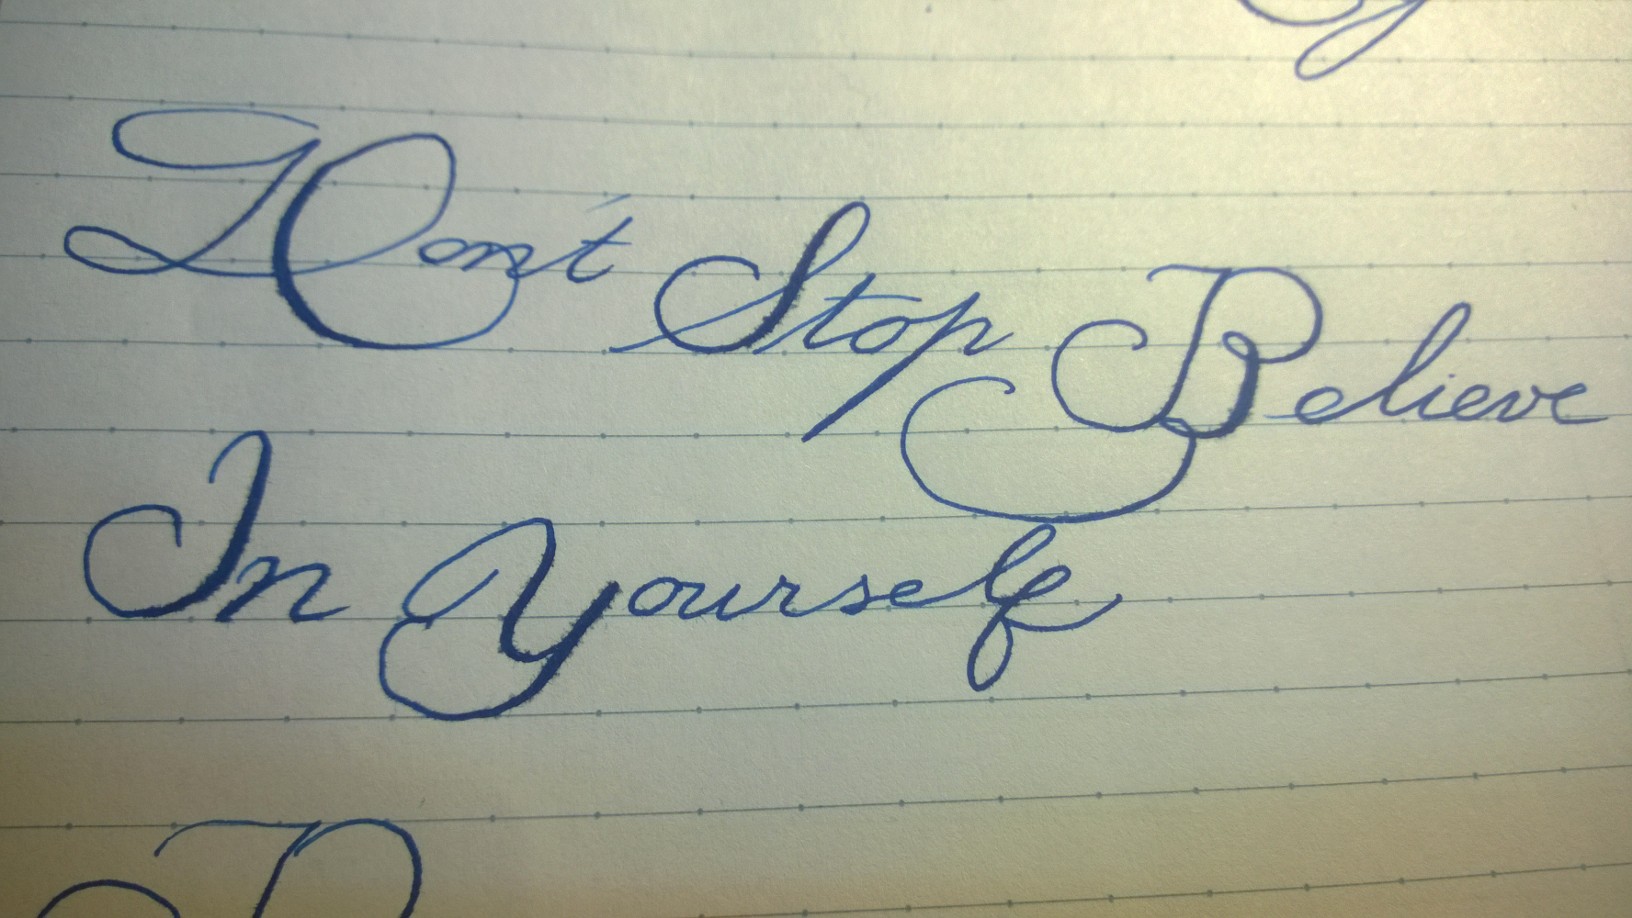 Don't Stop Believe
In Yourself